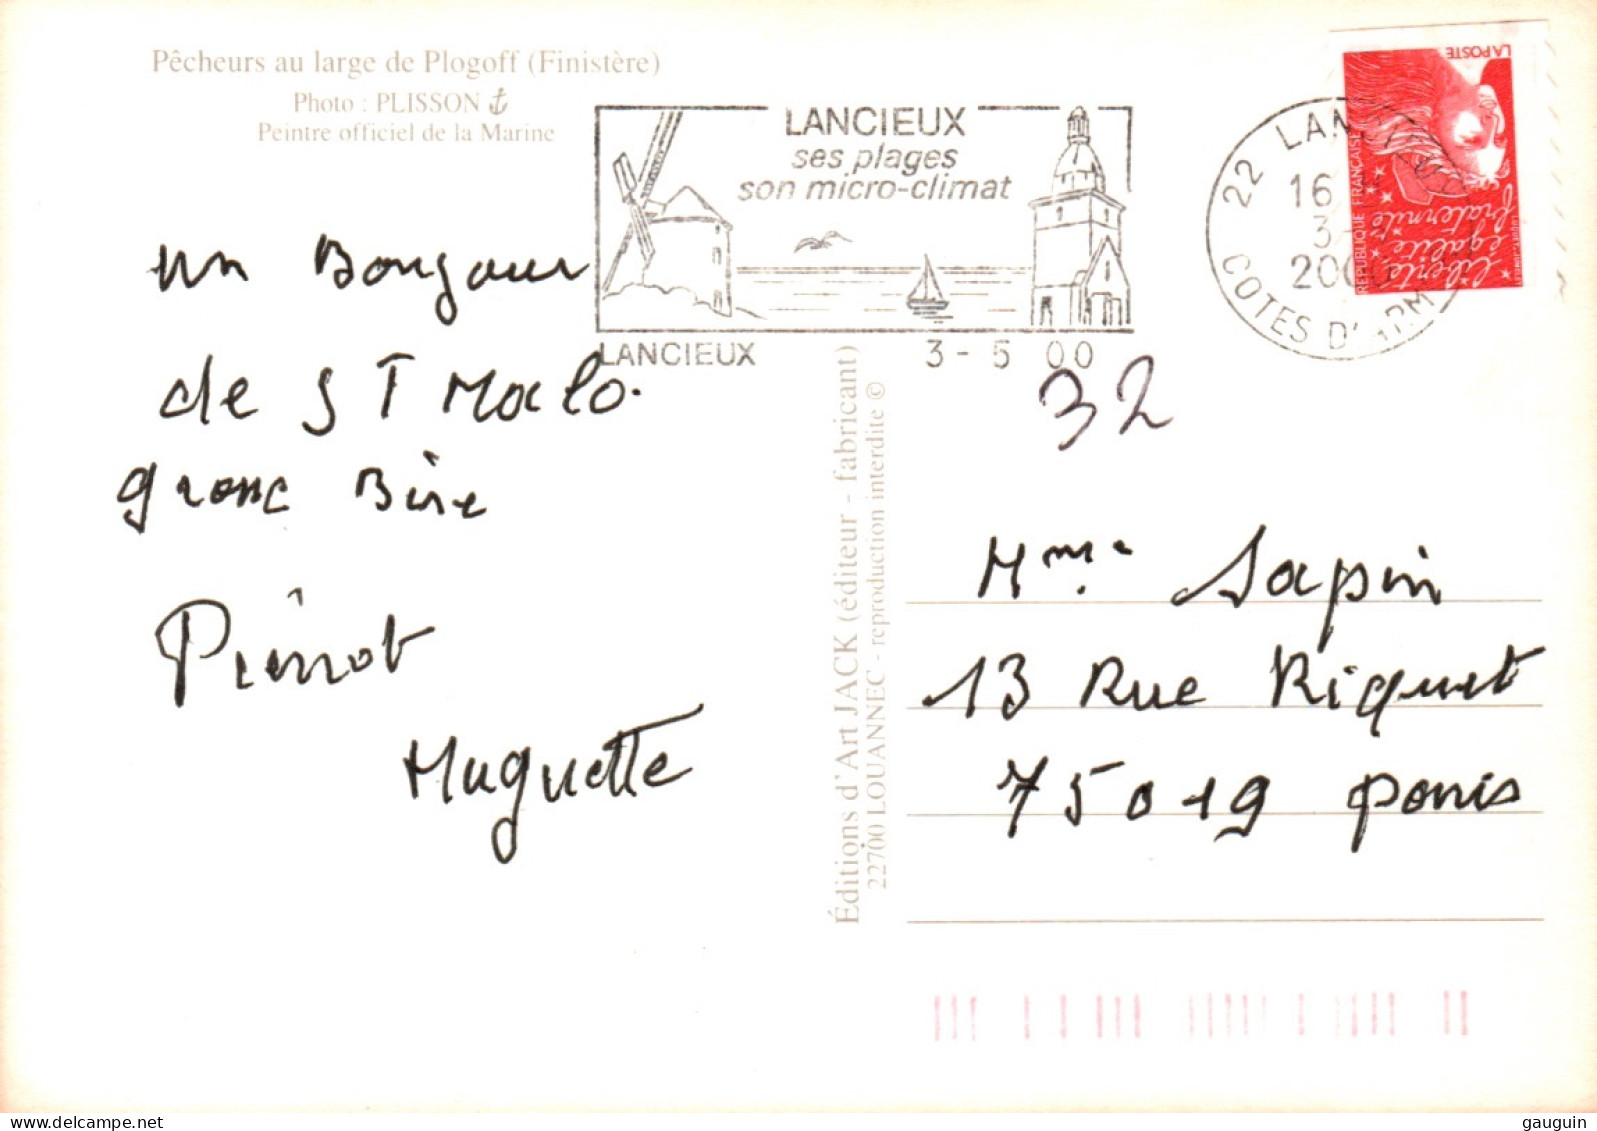 Pêcheurs au large de Plogoff (Finistère)
Photo : PLISSON
Peintre officiel de la Marine
LANCIEUX
ses plages
son micro-climat
LANCIEUX
3 - 5 00
22 LANCIEUX
16
3 -
2000
COTES D'ARM
LA POSTE
REPUBLIQUE FRANÇAISE
Liberté
égalité
fraternité
un Bonjour
de ST Malo.
Bise
Pierrot
Huguette
Éditions d'Art JACK (éditeur - fabricant)
22700 LOUANNEC - reproduction interdite ©
32
Mme Sapin
13 Rue Riquet
75019 Paris
gauguin